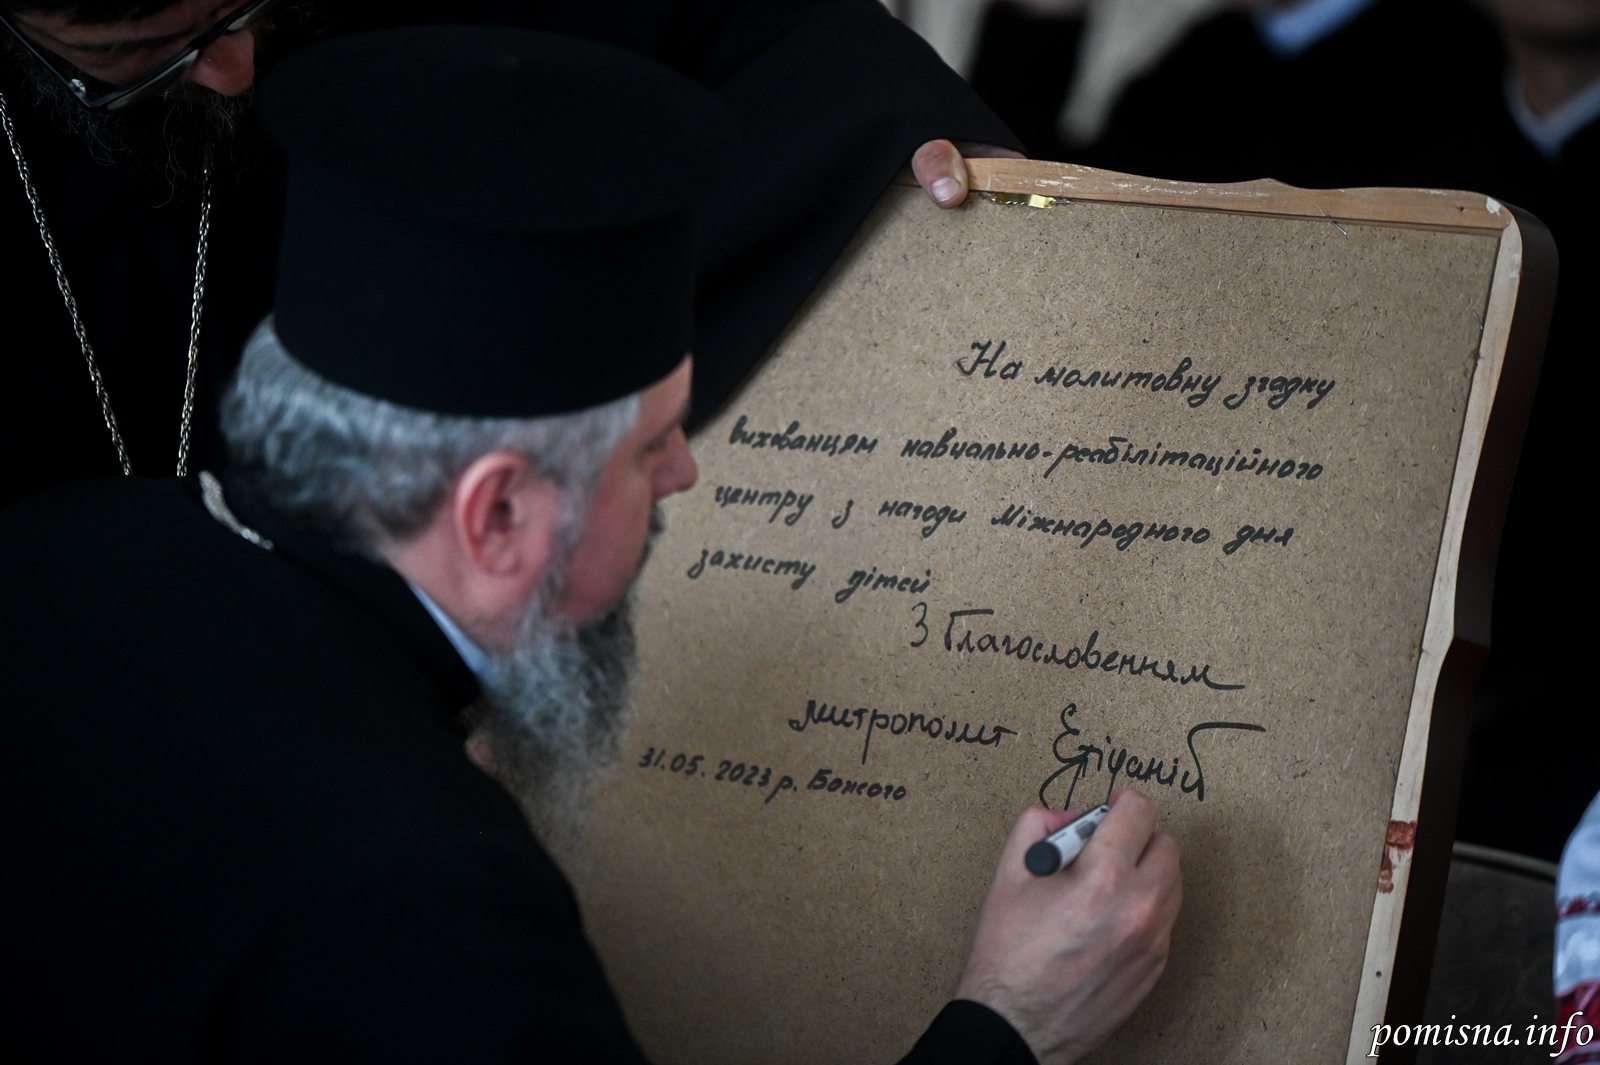 На молитовну згадку
вихованцям навчально-реабілітаційного
центру з нагоди Міжнародного дня
захисту дітей
З благословенням
митрополит Епіфаній
31.05.2023 р. Божого
pomisna.info